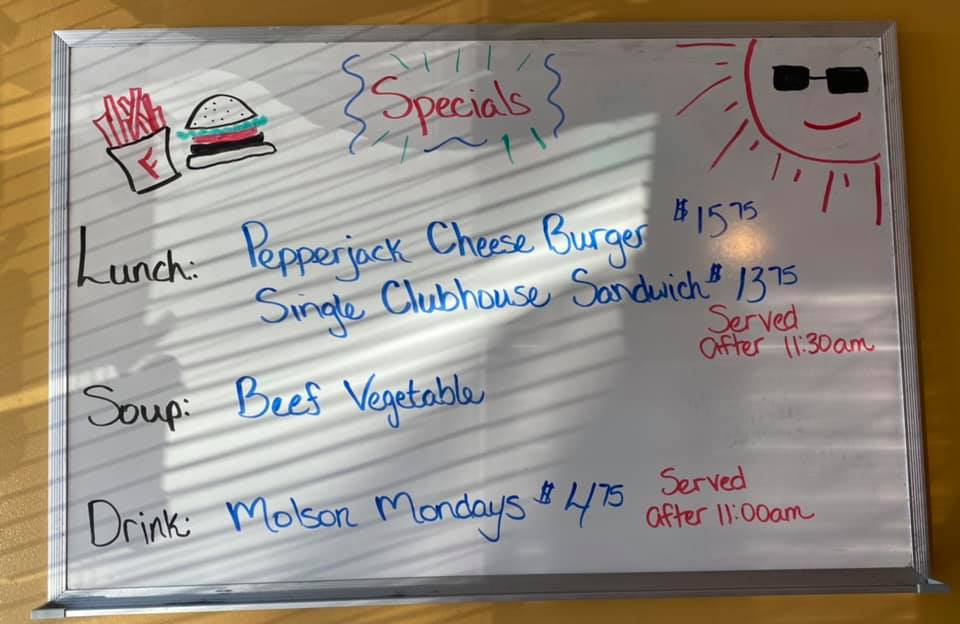 Specials
F
Lunch: Pepperjack Cheese Burger $15.75
Single Clubhouse Sandwich $13.75
Served
after 11:30am
Soup: Beef Vegetable
Drink: Molson Mondays $4.75
Served
after 11:00am